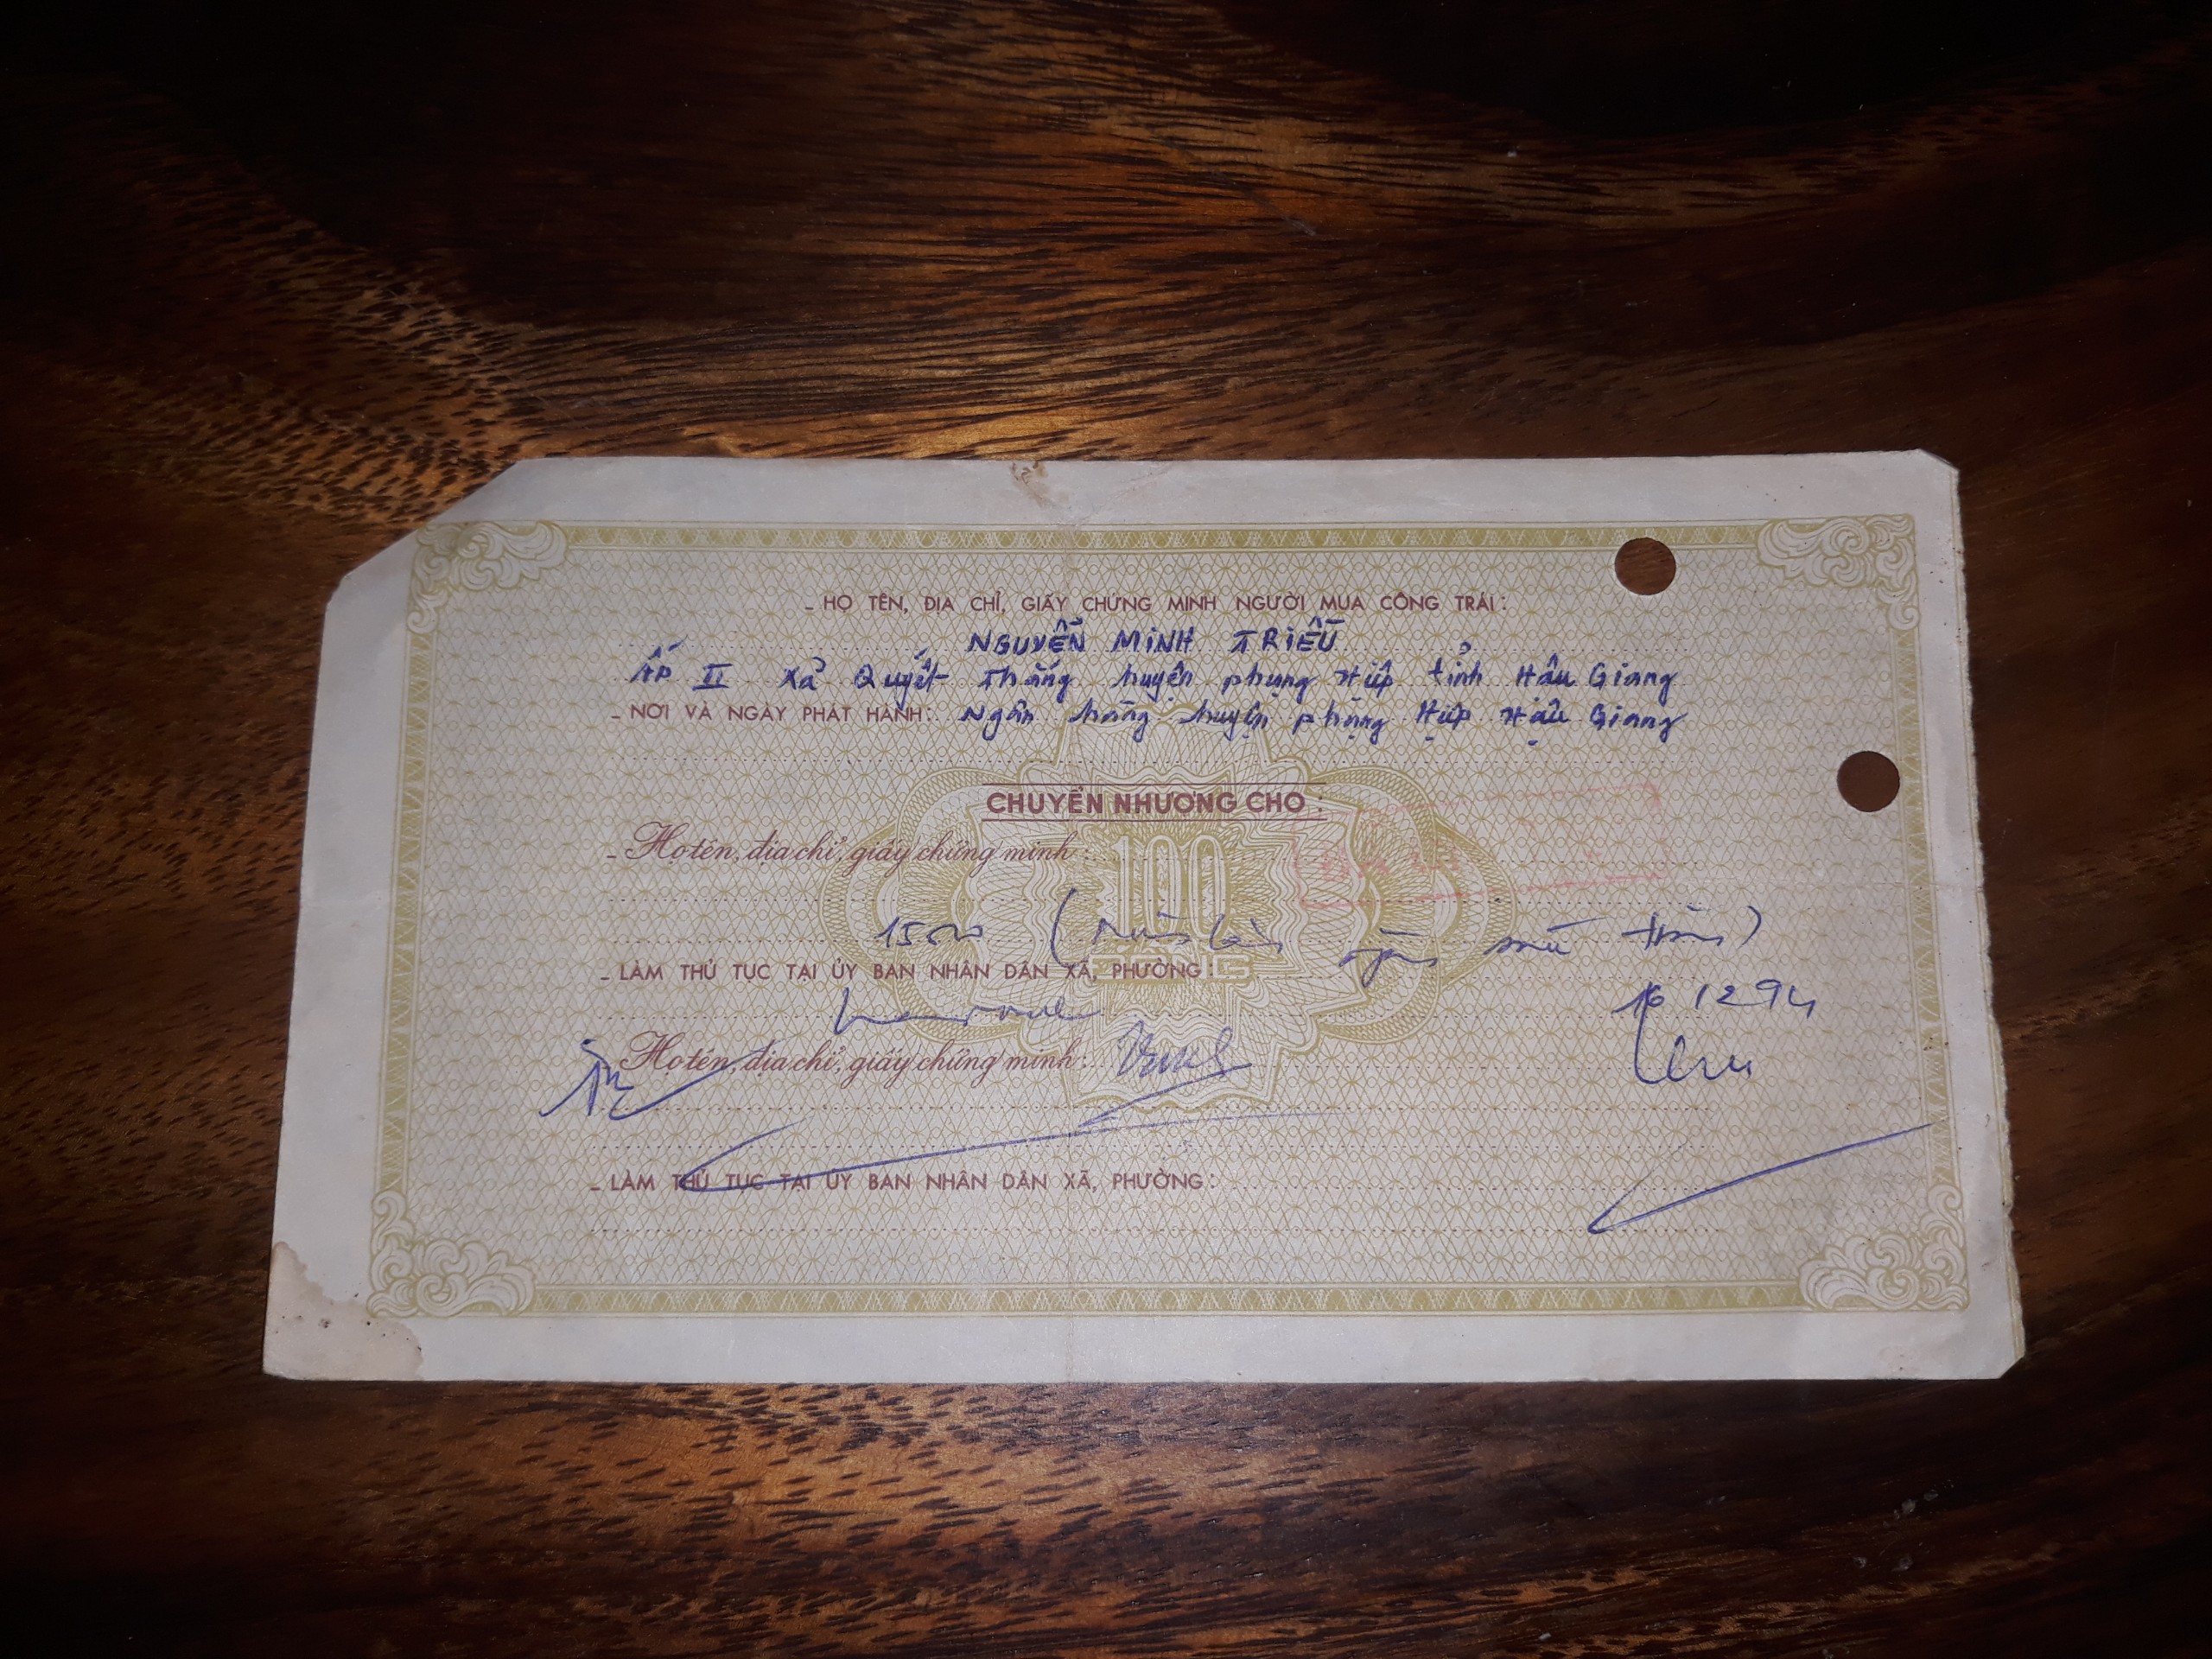 - HỌ TÊN, ĐỊA CHỈ, GIẤY CHỨNG MINH NGƯỜI MUA CÔNG TRÁI:
NGUYỄN MINH TRIỀU
Ấp II Xã Quyết Thắng huyện phụng Hiệp tỉnh Hậu Giang
- NƠI VÀ NGÀY PHÁT HÀNH: Ngân hàng huyện phụng Hiệp Hậu Giang
CHUYỂN NHƯỢNG CHO:
- Họ tên, địa chỉ, giấy chứng minh:
100
ĐỒNG
- LÀM THỦ TỤC TẠI ỦY BAN NHÂN DÂN XÃ, PHƯỜNG:
16 12 94
- Họ tên, địa chỉ, giấy chứng minh:
- LÀM THỦ TỤC TẠI ỦY BAN NHÂN DÂN XÃ, PHƯỜNG: